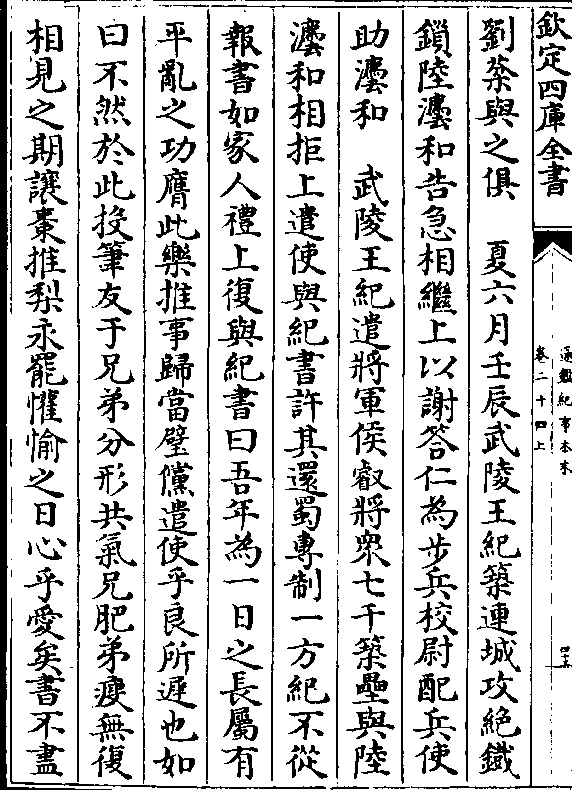 欽定四庫全書
通鑑紀事本末
卷二十四上
四十五
劉棻與之俱　夏六月壬辰武陵王紀築連城攻絶鐵
鎖陸灋和告急相繼上以謝答仁為步兵校尉配兵使
助灋和　武陵王紀遣將軍侯叡將衆七千築壘與陸
灋和相拒上遣使與紀書許其還蜀專制一方紀不從
報書如家人禮上復與紀書曰吾年為一日之長屬有
平亂之功膺此樂推事歸當璧儻遣使乎良所遲也如
曰不然於此投筆友于兄弟分形共氣兄肥弟瘦無復
相見之期讓棗推梨永罷懽愉之日心乎愛矣書不盡